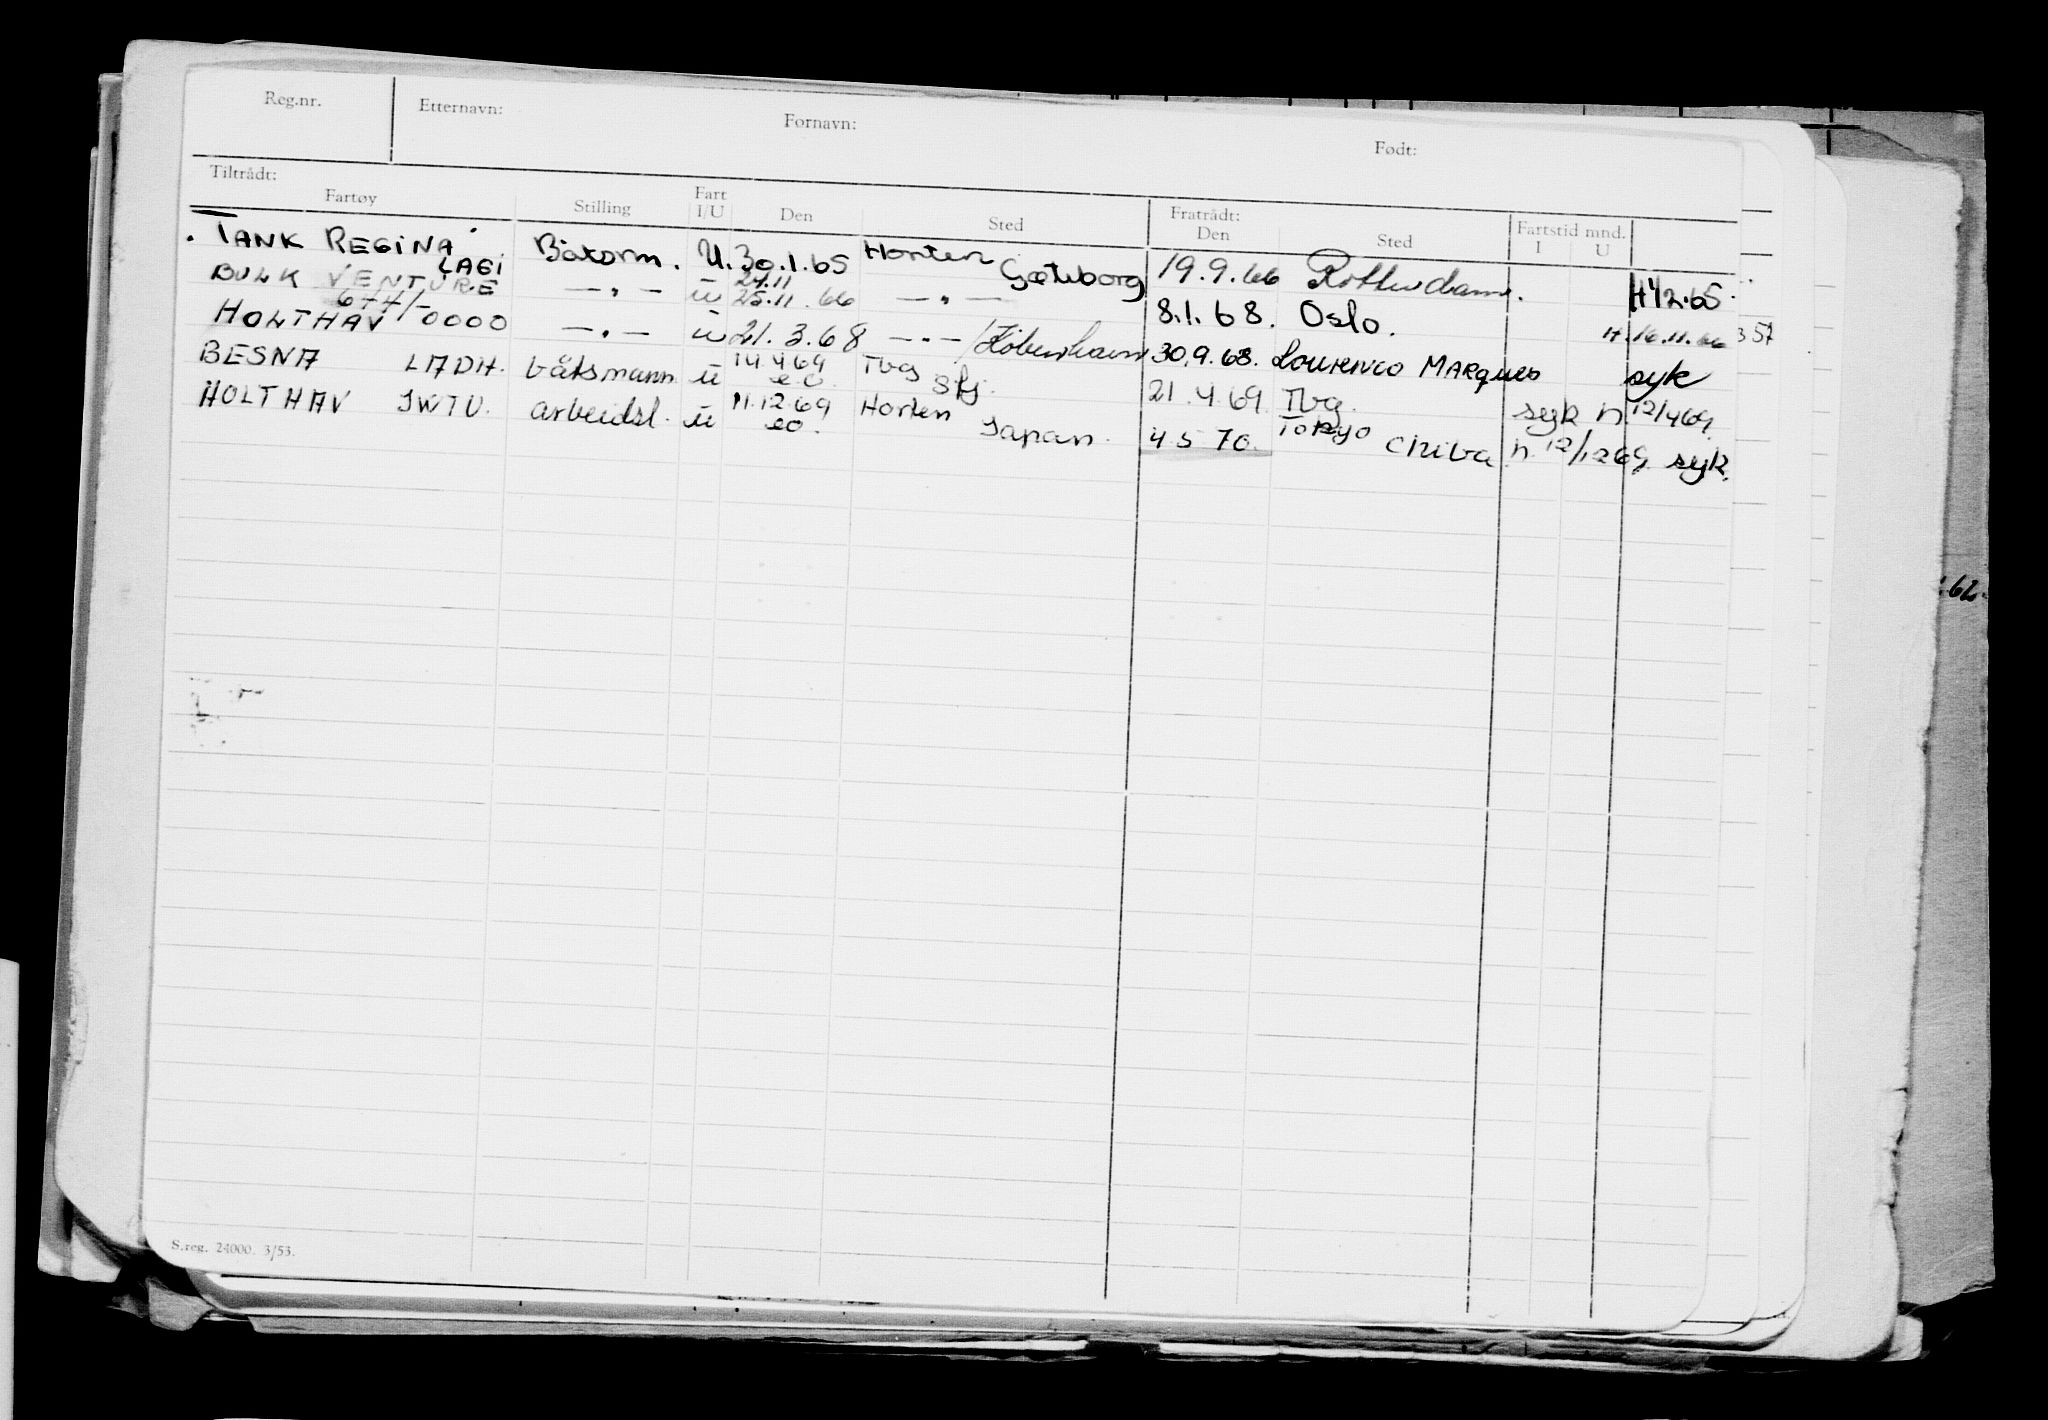 Reg.nr. Etternavn: Fornavn: Født:
Tiltrådt: Fratrådt:
Fartøy Stilling Fart I/U Den Sted Den Sted Fartstid mnd. I U
TANK REGINA LAGI Båtsm. U. 30.1.65 Horten Gøteborg 19.9.66 Rotterdam. H 1/2.65
BULK VENTURE 6+4/- — " — u 24.11 25.11.66 — " — 8.1.68. Oslo. H. 16.11.66 357
HOLTHAV 0000 — " — u 21.3.68 — " — / København 30.9.68. LOURENCO MARQUES syk
BESNA LADH. båtsmann u 14.4.69 e.o. Tbg Skj. 21.4.69. Tbg. syk n. 12/469.
HOLTHAV JWTU. arbeidsl. u 11.12.69 eo. Horten Japan. 4.5 70. Tokyo Chiba n. 12/1269. syk.
.62.
S.reg. 24000. 3/53.